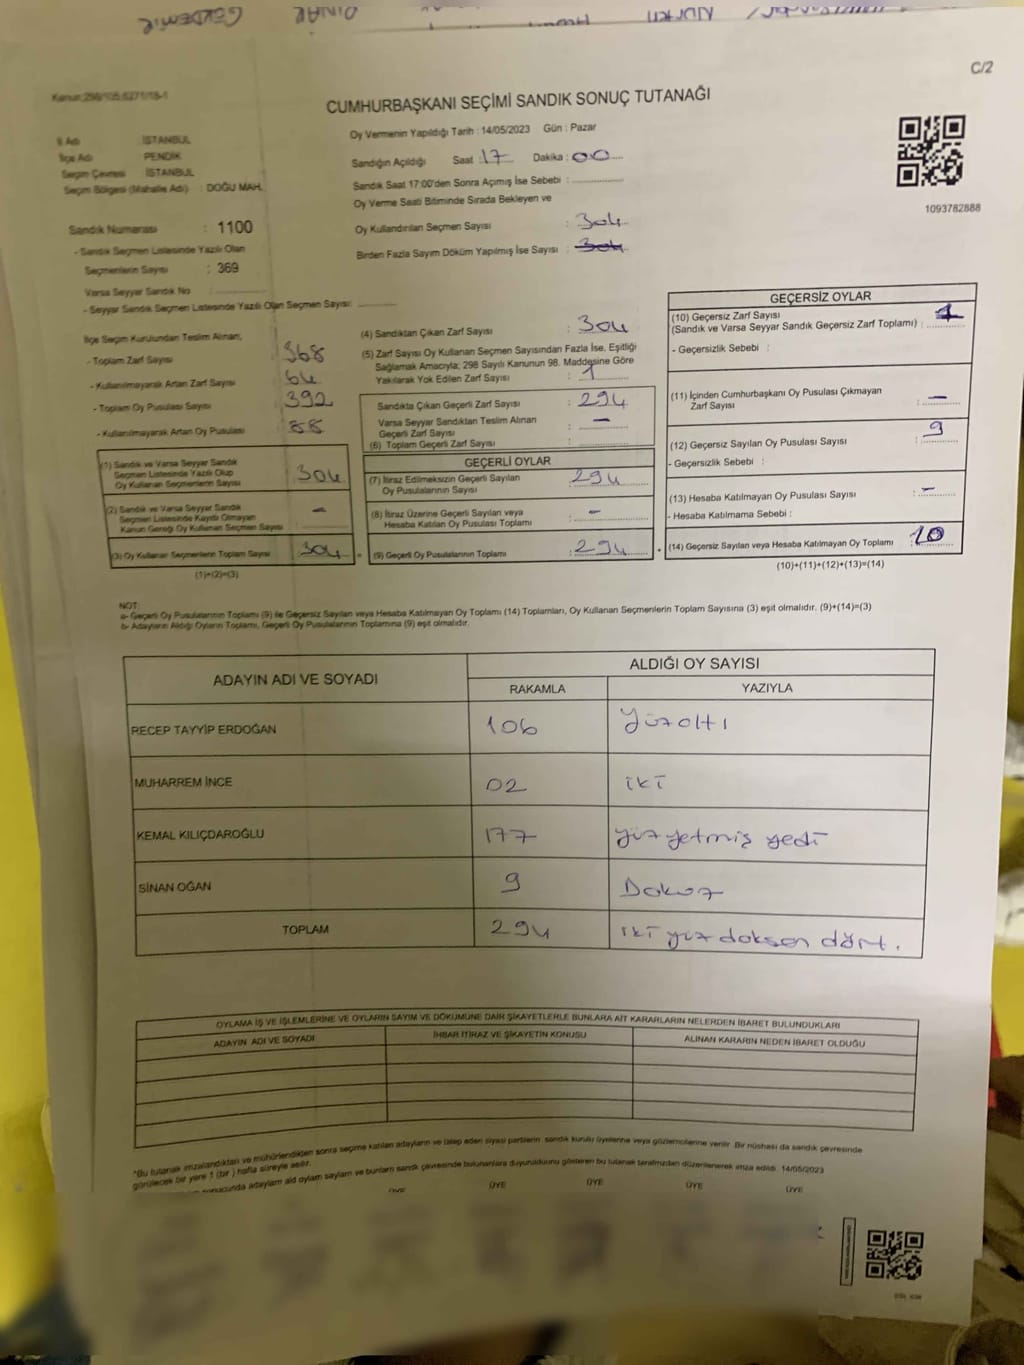 GÖKDEMİR
PINAR
C/2
Kanun:298/105,6271/18-1
CUMHURBAŞKANI SEÇİMİ SANDIK SONUÇ TUTANAĞI
İl Adı İSTANBUL
İlçe Adı PENDİK
Seçim Çevresi İSTANBUL
Seçim Bölgesi (Mahalle Adı) : DOĞU MAH.
Oy Vermenin Yapıldığı Tarih : 14/05/2023 Gün : Pazar
Sandığın Açıldığı Saat : 17 Dakika : 00
Sandık Saat 17:00'den Sonra Açımış İse Sebebi :
Oy Verme Saati Bitiminde Sırada Bekleyen ve
Oy Kullandırılan Seçmen Sayısı : 304
Birden Fazla Sayım Döküm Yapılmış İse Sayısı : 304
1093782888
Sandık Numarası : 1100
- Sandık Seçmen Listesinde Yazılı Olan
Seçmenlerin Sayısı : 369
Varsa Seyyar Sandık No
- Seyyar Sandık Seçmen Listesinde Yazılı Olan Seçmen Sayısı:
İlçe Seçim Kurulundan Teslim Alınan;
- Toplam Zarf Sayısı 368
- Kullanılmayarak Artan Zarf Sayısı 64
- Toplam Oy Pusulası Sayısı 392
- Kullanılmayarak Artan Oy Pusulası 88
(1) Sandık ve Varsa Seyyar Sandık
Seçmen Listesinde Yazılı Olup
Oy Kullanan Seçmenlerin Sayısı 304
(2) Sandık ve Varsa Seyyar Sandık
Seçmen Listesinde Kayıtlı Olmayan
Kanun Gereği Oy Kullanan Seçmen Sayısı : -
(3) Oy Kullanan Seçmenlerin Toplam Sayısı 304
(1)+(2)=(3)
(4) Sandıktan Çıkan Zarf Sayısı : 304
(5) Zarf Sayısı Oy Kullanan Seçmen Sayısından Fazla İse, Eşitliği
Sağlamak Amacıyla; 298 Sayılı Kanunun 98. Maddesine Göre
Yakılarak Yok Edilen Zarf Sayısı : 1
Sandıkta Çıkan Geçerli Zarf Sayısı : 294
Varsa Seyyar Sandıktan Teslim Alınan
Geçerli Zarf Sayısı : -
(6) Toplam Geçerli Zarf Sayısı :
GEÇERLİ OYLAR
(7) İtiraz Edilmeksizin Geçerli Sayılan
Oy Pusulalarının Sayısı : 294
(8) İtiraz Üzerine Geçerli Sayılan veya
Hesaba Katılan Oy Pusulası Toplamı : -
(9) Geçerli Oy Pusulalarının Toplamı : 294
GEÇERSİZ OYLAR
(10) Geçersiz Zarf Sayısı
(Sandık ve Varsa Seyyar Sandık Geçersiz Zarf Toplamı) : 1
- Geçersizlik Sebebi :
(11) İçinden Cumhurbaşkanı Oy Pusulası Çıkmayan
Zarf Sayısı : -
(12) Geçersiz Sayılan Oy Pusulası Sayısı : 9
- Geçersizlik Sebebi :
(13) Hesaba Katılmayan Oy Pusulası Sayısı : -
- Hesaba Katılmama Sebebi :
(14) Geçersiz Sayılan veya Hesaba Katılmayan Oy Toplamı : 10
(10)+(11)+(12)+(13)=(14)
NOT
a- Geçerli Oy Pusulalarının Toplamı (9) ile Geçersiz Sayılan veya Hesaba Katılmayan Oy Toplamı (14) Toplamları, Oy Kullanan Seçmenlerin Toplam Sayısına (3) eşit olmalıdır. (9)+(14)=(3)
b- Adayların Aldığı Oyların Toplamı, Geçerli Oy Pusulalarının Toplamına (9) eşit olmalıdır.
ADAYIN ADI VE SOYADI ALDIĞI OY SAYISI
RAKAMLA YAZIYLA
RECEP TAYYİP ERDOĞAN 106 yüzaltı
MUHARREM İNCE 02 iki
KEMAL KILIÇDAROĞLU 177 yüz yetmiş yedi
SİNAN OĞAN 9 Dokuz
TOPLAM 294 iki yüz doksan dört.
OYLAMA İŞ VE İŞLEMLERİNE VE OYLARIN SAYIM VE DÖKÜMÜNE DAİR ŞİKAYETLERLE BUNLARA AİT KARARLARIN NELERDEN İBARET BULUNDUKLARI
ADAYIN ADI VE SOYADI İHBAR İTİRAZ VE ŞİKAYETİN KONUSU ALINAN KARARIN NEDEN İBARET OLDUĞU
*Bu tutanak imzalandıktan ve mühürlendikten sonra seçime katılan adayların ve talep eden siyasi partilerin sandık kurulu üyelerine veya gözlemcilerine verilir. Bir nüshası da sandık çevresinde
görülecek bir yere 1 (bir ) hafta süreyle asılır.
sonucunda adayların ald oyların sayların ve bunların sandık çevresinde bulunanlara duyurulduğunu gösteren bu tutanak tarafımızdan düzenlenerek imza edildi. 14/05/2023
ÜYE ÜYE ÜYE ÜYE ÜYE